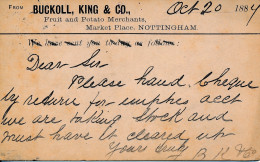 FROM BUCKOLL, KING & CO., Oct 20 1884
Fruit and Potato Merchants,
Market Place, NOTTINGHAM.
Dear Sir
Please hand Cheque
by return for empties acct
we are taking stock and
must have it cleared up
Yours truly
B K & Co